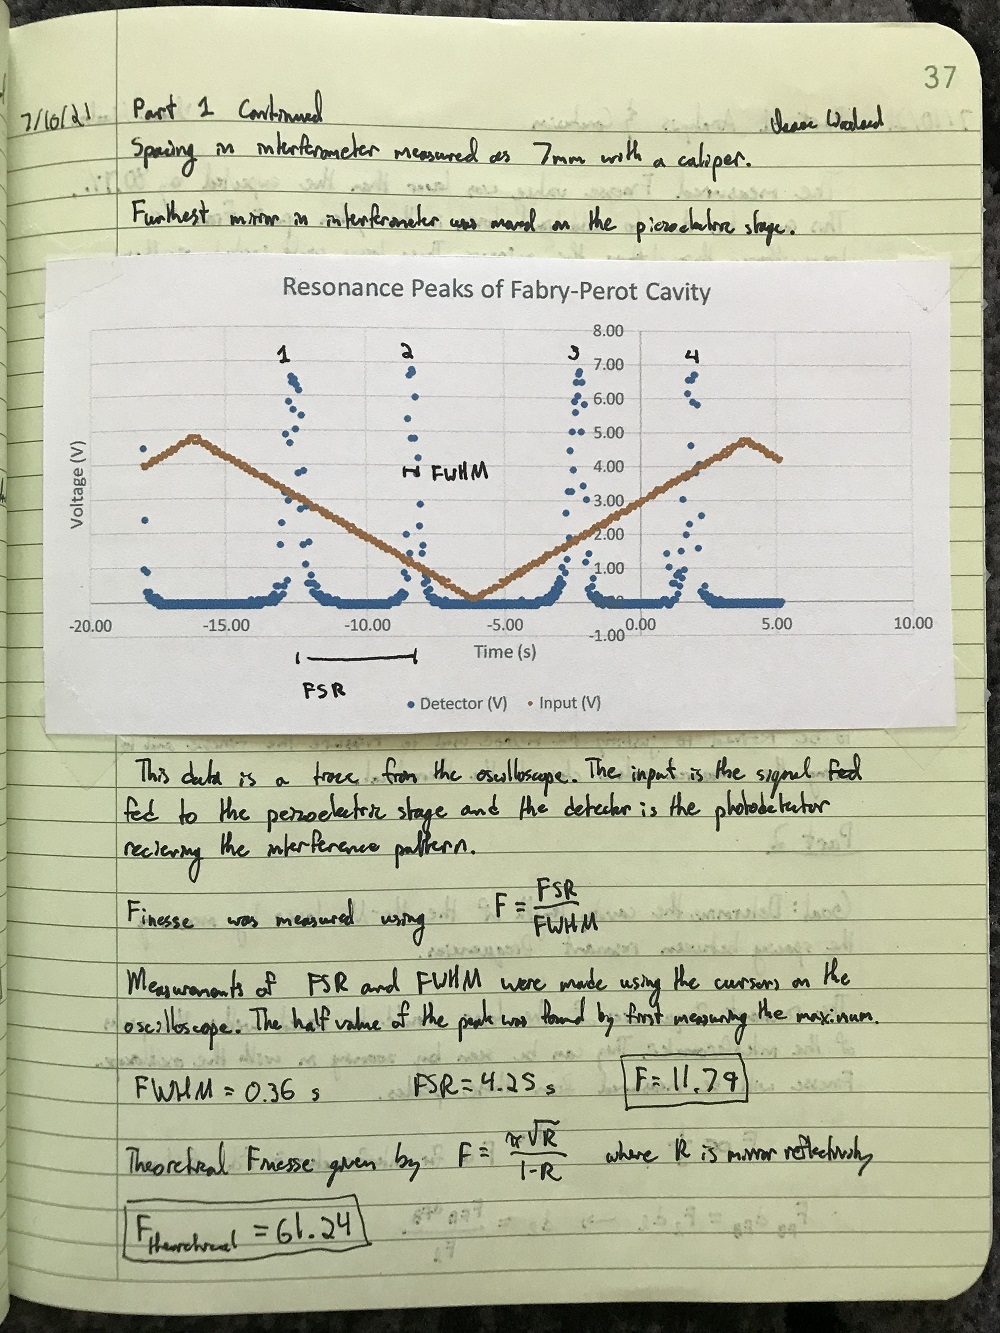 37
7/10/21
Part 1 Continued
Isaac Woodard
Spacing in interferometer measured as 7mm with a caliper.
Furthest mirror in interferometer was moved on the piezoelectric stage.
Resonance Peaks of Fabry-Perot Cavity
8.00
1 2 3 4
7.00
6.00
5.00
4.00
FWHM
3.00
2.00
1.00
-20.00 -15.00 -10.00 -5.00 0.00 5.00 10.00
-1.00
Voltage (V)
Time (s)
FSR
Detector (V) Input (V)
This data is a trace from the oscilloscope. The input is the signal fed
fed to the peizoelectric stage and the detector is the photodetector
recieving the interference pattern.
Finesse was measured using F = FSR/FWHM
Measurements of FSR and FWHM were made using the cursors on the
oscilloscope. The half value of the peak was found by first measuring the maximum.
FWHM = 0.36 s FSR = 4.25 s F = 11.79
Theoretical Finesse given by F = π√R/1-R where R is mirror reflectivity
Ftheoretical = 61.24